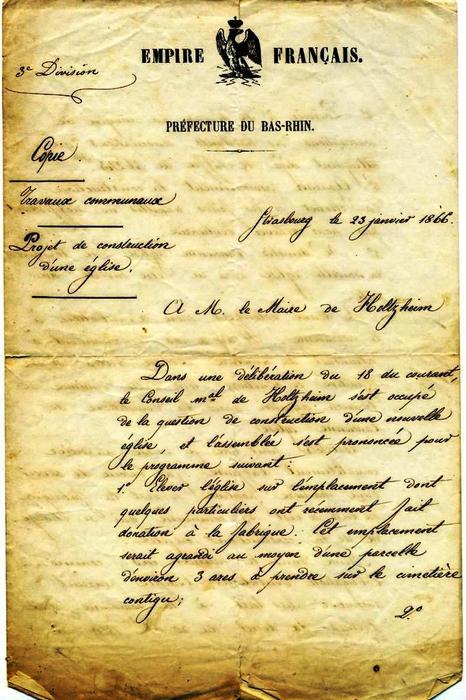 EMPIRE FRANÇAIS.
3e Division
PRÉFECTURE DU BAS-RHIN.
Copie.
Travaux communaux
Strasbourg le 23 janvier 1866.
Projet de construction
d'une église.
A M. le Maire de Holtzheim
Dans une délibération du 18 du courant,
le Conseil mal de Holtzheim s'est occupé
de la question de construction d'une nouvelle
église, et l'assemblée s'est prononcée pour
le programme suivant:
1o Elever l'église sur l'emplacement dont
quelques particuliers ont recemment fait
donation à la fabrique. Cet emplacement
serait agrandi au moyen d'une parcelle
d'environ 3 ares à prendre sur le cimetière
contigu;
2o